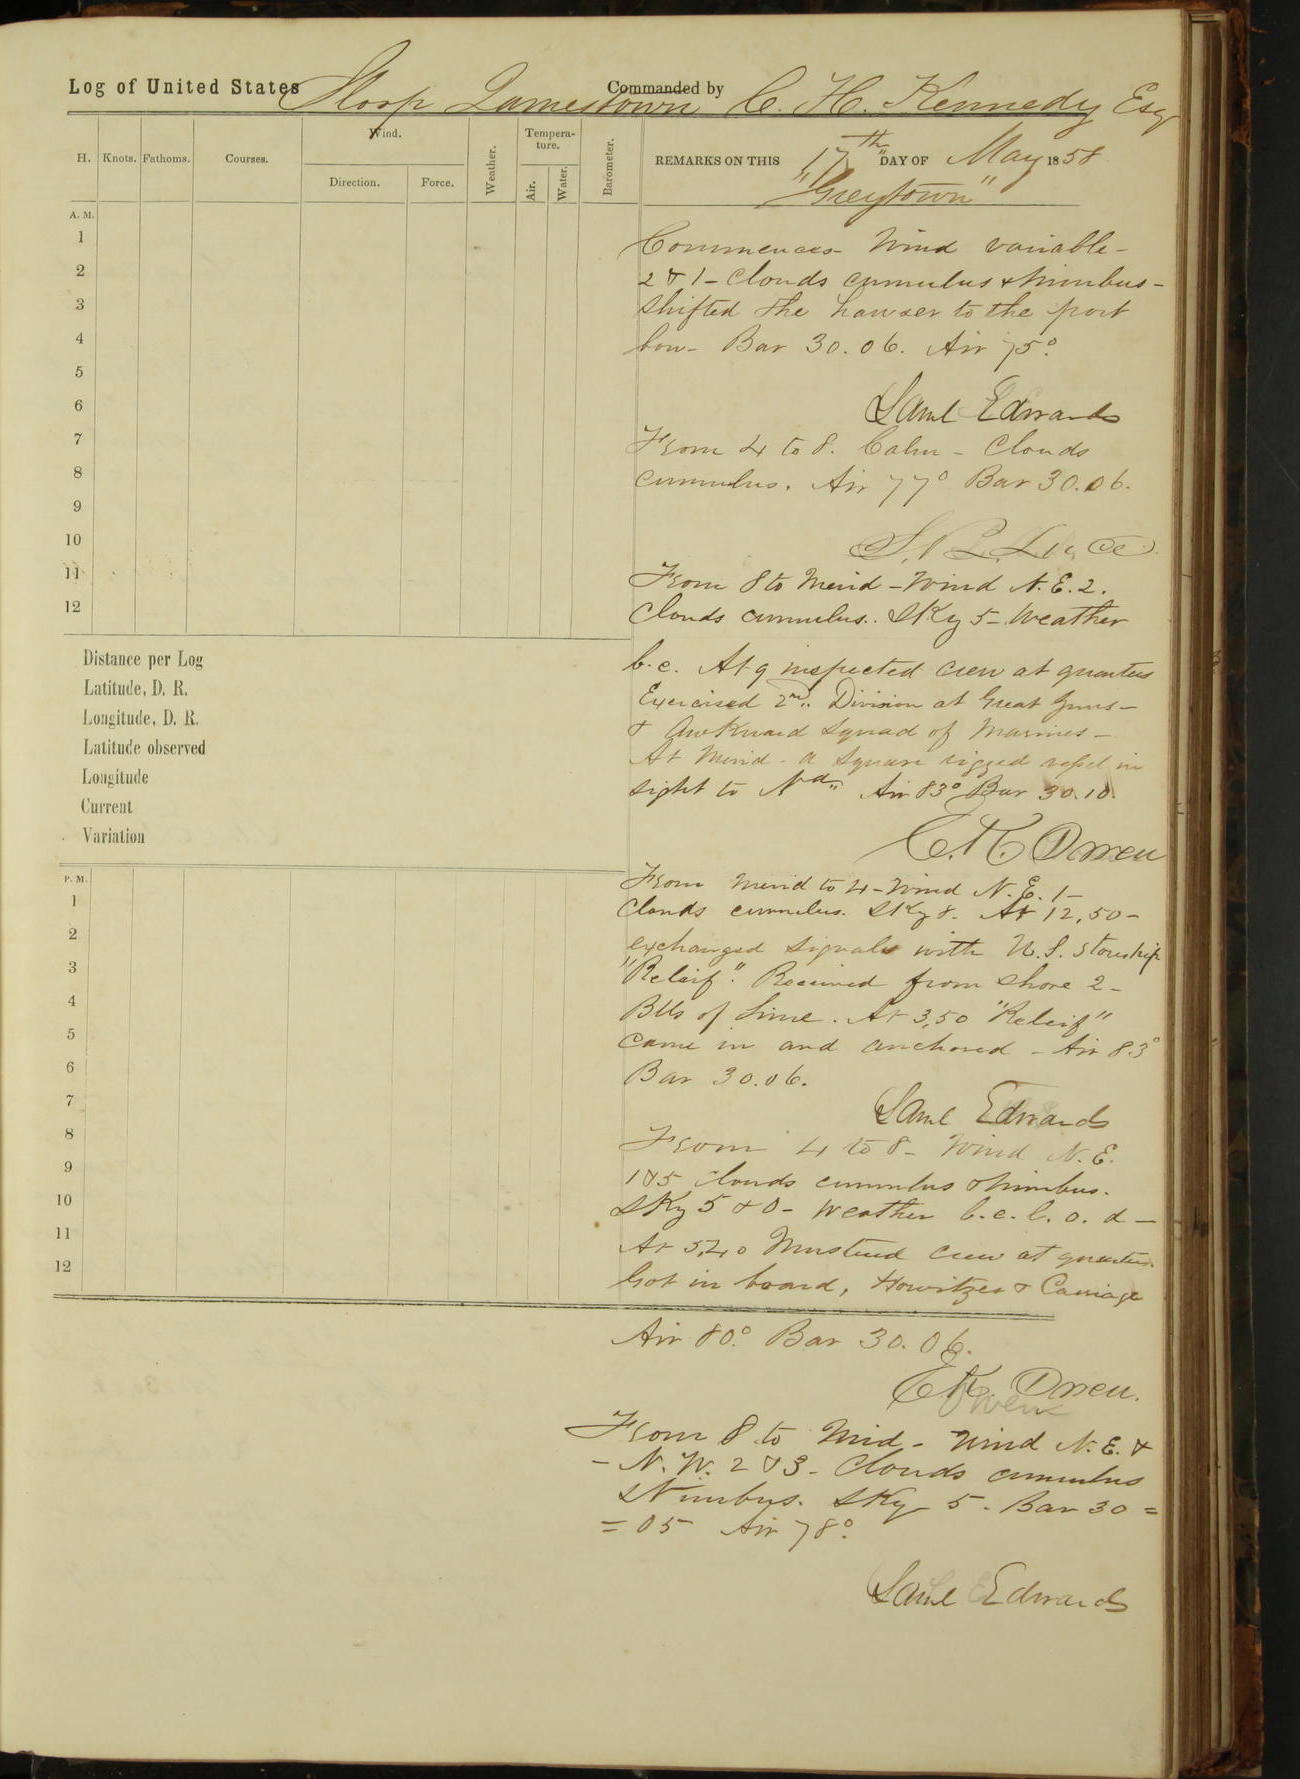 Log of United States Sloop Jamestown Commanded by C. H. Kennedy Esq
H. Knots. Fathoms. Courses. Wind. Direction. Force. Weather. Tempera-ture. Air. Water. Barometer.
REMARKS ON THIS 17th DAY OF May 1858
"Greytown"
A. M.
1
2
3
4
5
6
7
8
9
10
11
12
Commences Wind variable -
2 & 1 - Clouds cumulus & Nimbus -
shifted the hawser to the port
bow - Bar 30.06. Air 75°.
Saml Edwards
From 4 to 8. Calm - Clouds
cumulus. Air 77° Bar 30.06.
S. B. Luce
From 8 to Merid - Wind N. E. 2.
Clouds cumulus. Sky 5 - Weather
b. c. At 9 inspected crew at quarters
Exercised 2nd Division at Great Guns -
& Awkward Squad of Marines -
At Merid - a Square rigged vessel in
sight to Nd. Air 83° Bar 30.10.
Distance per Log
Latitude, D. R.
Longitude, D. R.
Latitude observed
Longitude
Current
Variation
P. M.
1
2
3
4
5
6
7
8
9
10
11
12
From Merid to 4 - Wind N. E. 1 -
Clouds cumulus. Sky 8. At 12,50 -
exchanged signals with U. S. Storeship
"Releif". Received from shore 2 -
Blls of Lime. At 3,50 "Releif"
came in and anchored - Air 83°
Bar 30.06.
Saml Edwards
From 4 to 8 - Wind N. E.
1 & 5 clouds cumulus & Nimbus.
Sky 5 & 0 - Weather b. c. l. o. d -
At 5,40 Mustered crew at quarters.
Got in board, Howitzer & Carriage
Air 80°. Bar 30.06.
From 8 to Mid - Wind N. E. &
- N. W. 2 & 3 - Clouds cumulus
& Nimbus. Sky 5 - Bar 30 =
= 05 Air 78°.
Saml Edwards